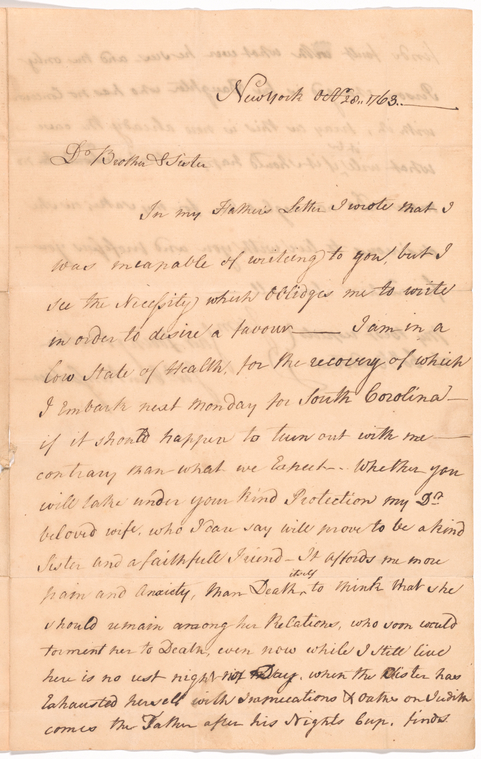 New York Octr. 28.. 1763.
Dr. Brother & Sister
In my Father's Letter I wrote that I
was incapable of writeing to you, but I
see the Necessity which Oblidges me to write
in order to desire a favour — I am in a
low State of Health, for the recovery of which
I Embark next Monday for South Carolina —
if it should happen to turn out with me —
contrary than what we Expect — Whether you
will take under your kind Protection my Dr.
beloved wife, who I dare say will prove to be a kind
Sister and a faithfull Friend — It affords me more
pain and Anxiety, than Death itself to think that she
should remain among her Relations, who soon would
torment her to Death, even now while I still live
here is no rest night nor Day, when the Sister has
Exhausted herself with Imprecations & Oathes on Judith
comes the Father after his Nights Cup, finds